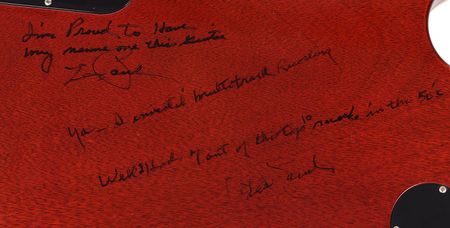 I'm Proud to Have
my name one this Guitar
Les Paul
Ya — I invented multitrack Recording
Well I Had 7 out of the top 10 records in the 50's
Les Paul